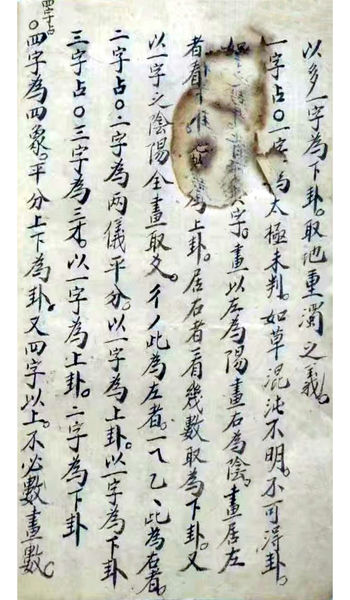 以多一字為下卦。取地重濁之義。
一字占○一字為太極未判。如草混沌不明。不可得卦。
如字。畫以左為陽畫右為陰。畫居左
者看為上卦。居右者看幾數取為下卦。又
以一字之陰陽全畫取爻。彳丿此為左者。一乁乙丶此為右者。
二字占○二字為兩儀平分。以一字為上卦。以一字為下卦
三字占○三字為三才。以一字為上卦。二字為下卦
四字占
○四字為四象。平分上下為卦。又四字以上。不必數畫數。